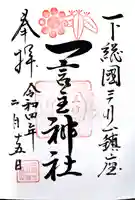 下総國三鎮座
一言主神社
奉拝
令和四年
二月十五日